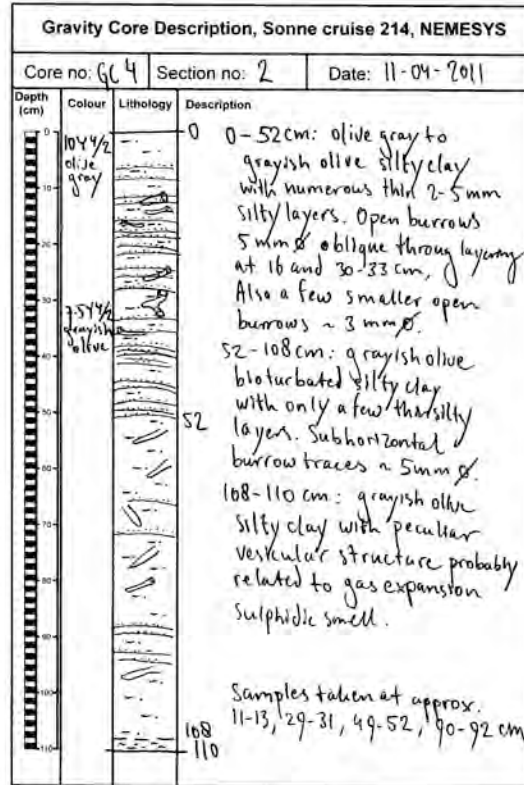 Gravity Core Description, Sonne cruise 214, NEMESYS
Core no: GC 4 Section no: 2 Date: 11-04-2011
Depth (cm) Colour Lithology Description
0
10
20
30
40
50
60
70
80
90
100
110
10Y4/2
olive
gray
7.5Y4/2
grayish
olive
0
52
108
110
0-52cm: olive gray to
grayish olive silty clay
with numerous thin 2-5mm
silty layers. Open burrows
5mm ø oblique throug layering
at 16 and 30-33 cm,
Also a few smaller open
burrows ~ 3mm ø.
52-108cm: grayish olive
bioturbated silty clay
with only a few thin silty
layers. Subhorizontal
burrow traces ~ 5mm ø.
108-110 cm: grayish olive
silty clay with peculiar
vesicular structure probably
related to gas expansion
Sulphidic smell.
Samples taken at approx.
11-13, 29-31, 49-52, 90-92 cm